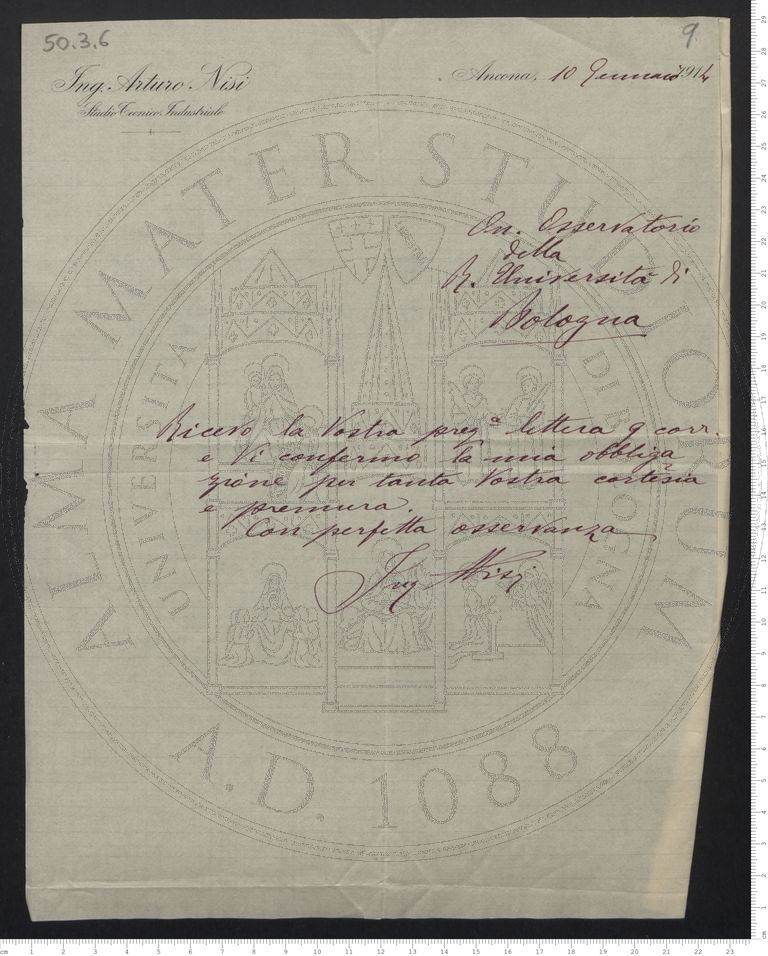 50.3.6
9.
Ing. Arturo Nisi
Studio Tecnico Industriale
Ancona, 10 Gennaio 1914
On. Osservatorio
della
R. Università di
Bologna
Ricevo la Vostra preg.a lettera 9 corr.
e Vi confermo la mia obbliga
zione per tanta Vostra cortesia
e premura.
Con perfetta osservanza
Ing ANisi
ALMA MATER STUDIORUM
UNIVERSITA DI BOLOGNA
A.D. 1088